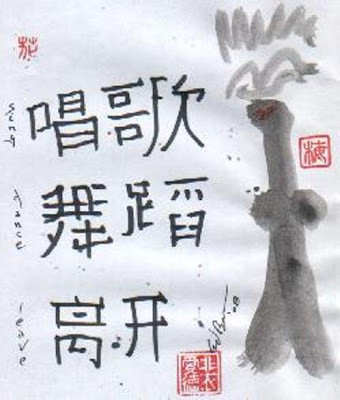 sing
唱歌
dance
舞蹈
leave
离开
梅